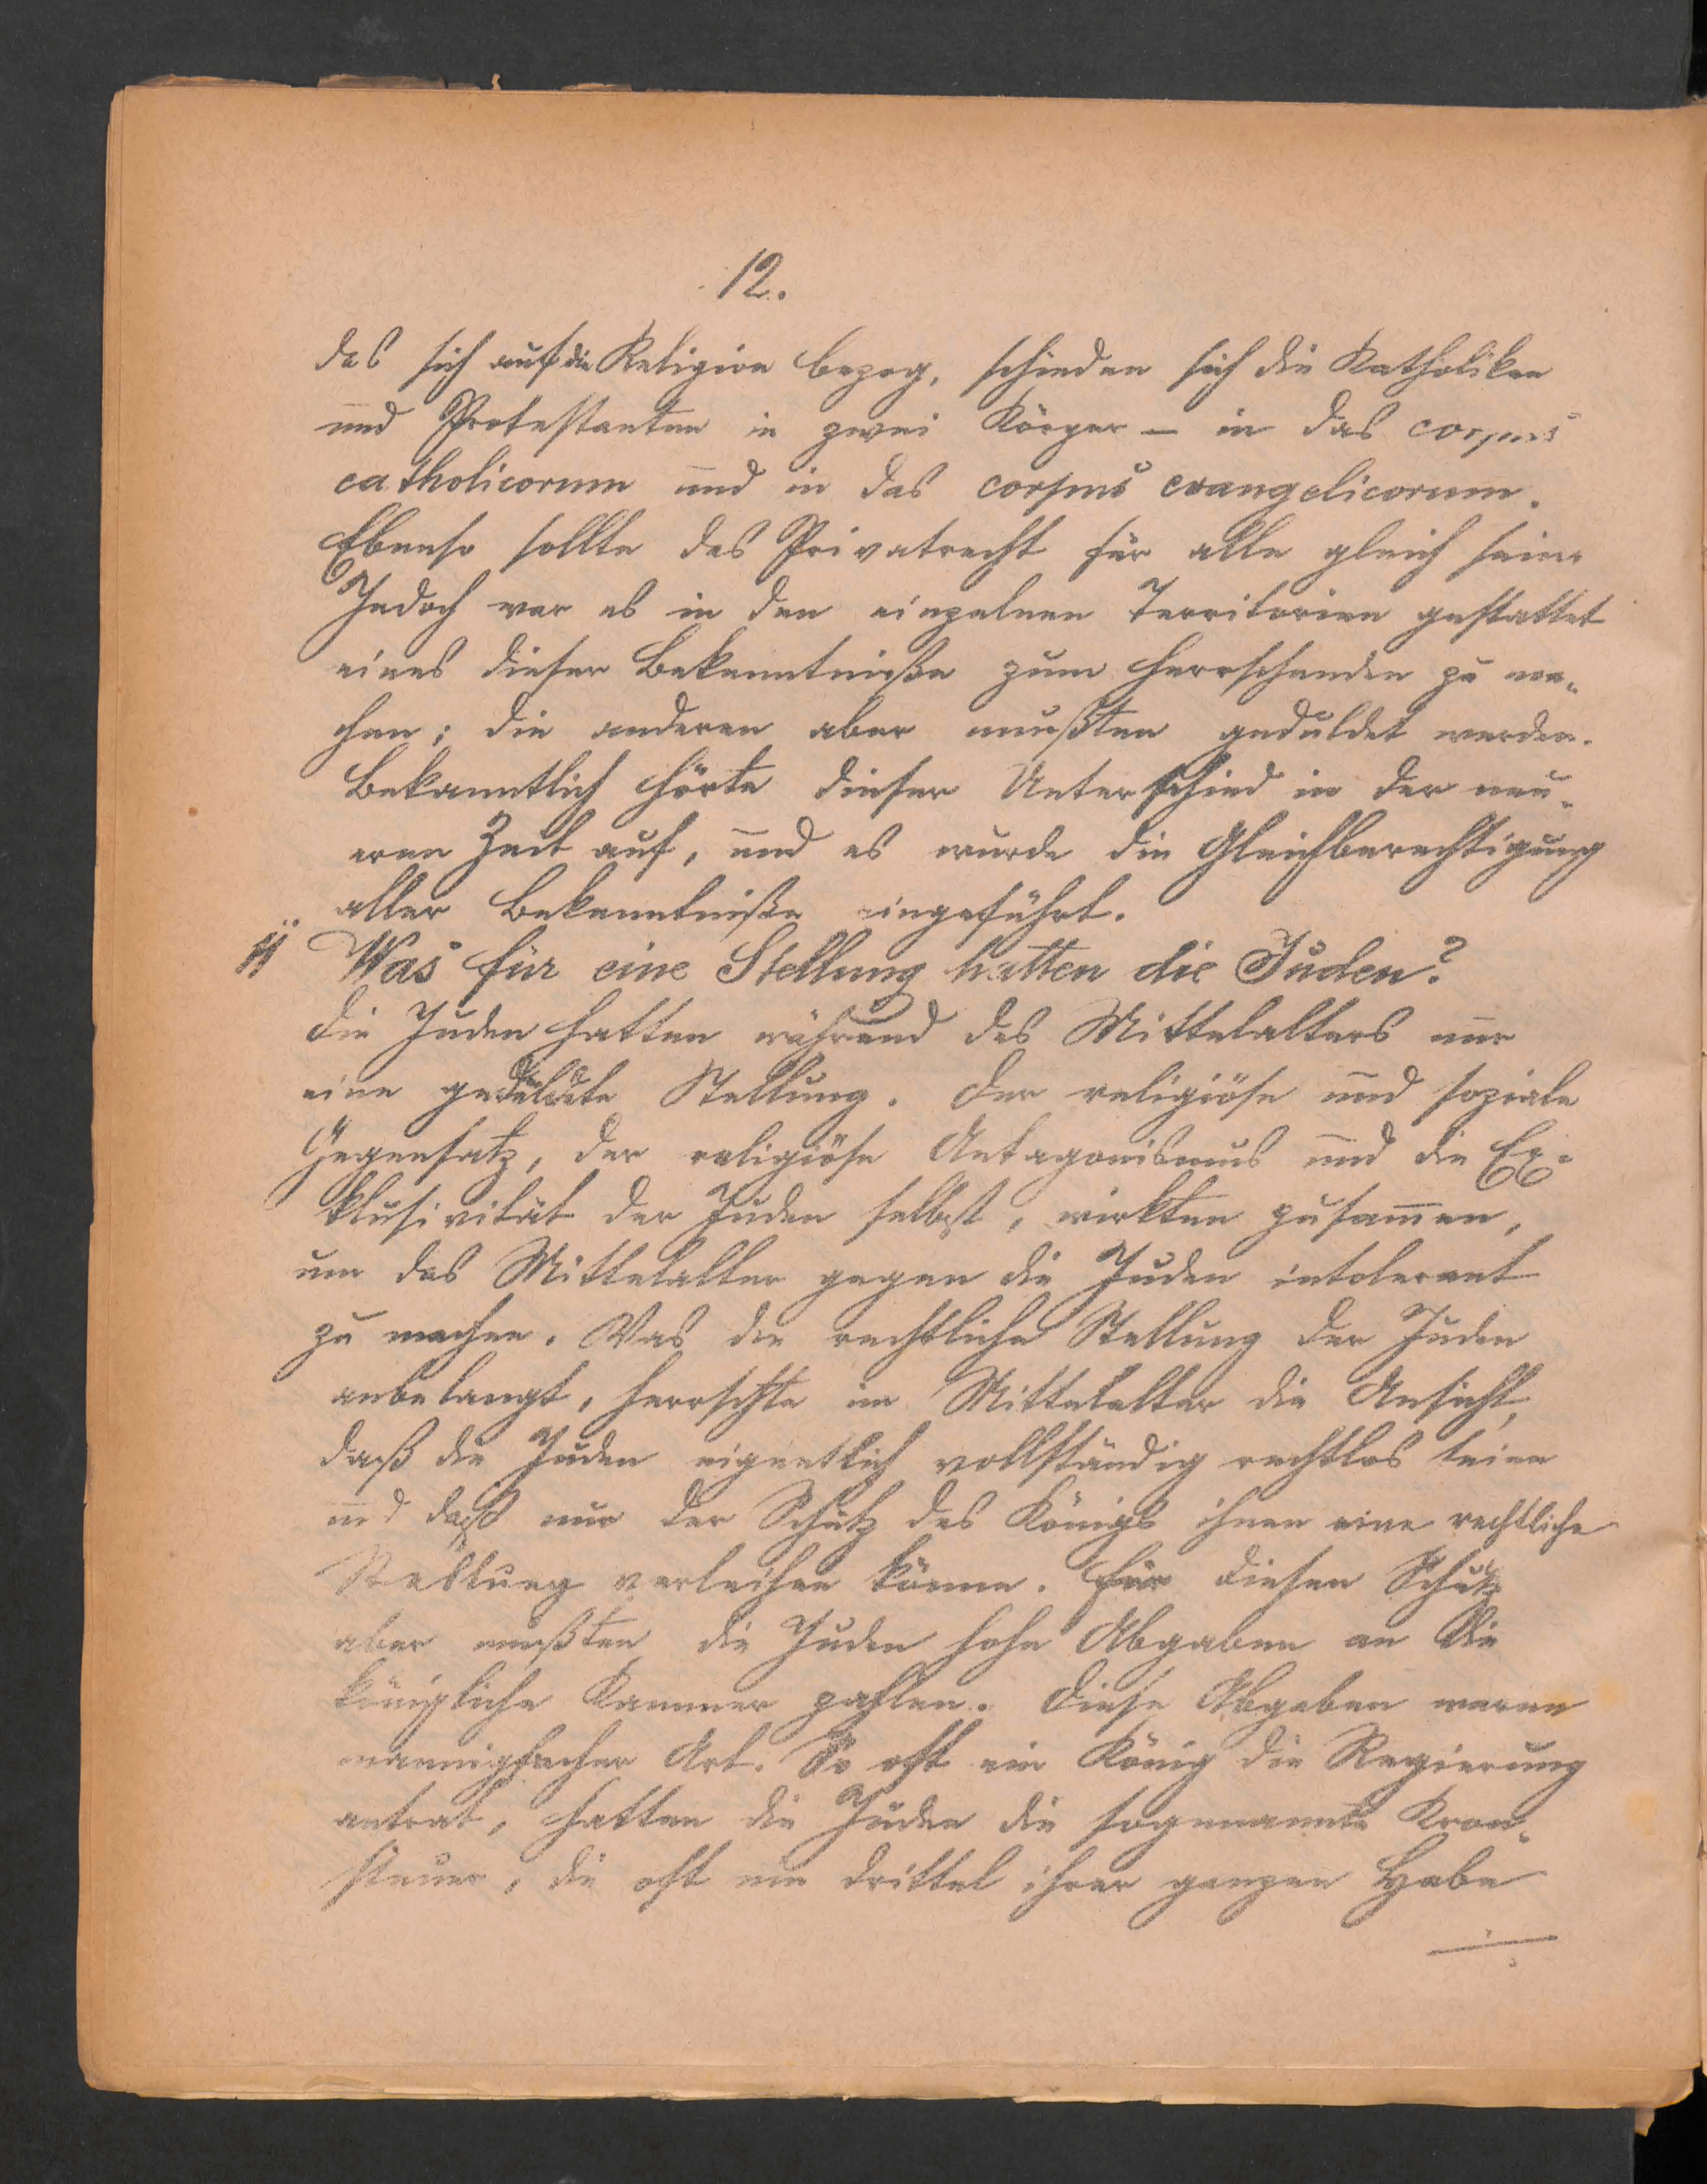 12.
das sich auf die Religion bezog, schieden sich die Katholiken
und Protestanten in zwei Körper – in das corpus
catholicorum und in das corpus evangelicorum.
Ebenso sollte das Privatrecht für alle gleich sein.
Jedoch war es in den einzelnen Territorien gestattet
eines dieser Bekenntniße zum herrschenden zu ma-
chen; die anderen aber mußten geduldet werden.
Bekanntlich hörte dieser Unterschied in der neu-
eren Zeit auf, und es wurde die Gleichberechtigung
aller Bekenntniße eingeführt.
Was für eine Stellung hatten die Juden?
Die Juden hatten während des Mittelalters nur
eine geduldete Stellung. Der religiöse und soziale
Gegensatz, der religiöse Antagonismus und die Ex-
klusivität der Juden selbst, wirkten zusammen,
um das Mittelalter gegen die Juden intolerant
zu machen. Was die rechtliche Stellung der Juden
anbelangt, herrschte im Mittelalter die Ansicht,
daß die Juden eigentlich vollständig rechtlos seien
und daß nur der Schutz des Königs ihnen eine rechtliche
Stellung verleihen könne. Für diesen Schutz
aber mußten die Juden hohe Abgaben an die
königliche Kammer zahlen. Diese Abgaben waren
mannigfacher Art. So oft ein König die Regierung
antrat, hatten die Juden die sogenannte Kron-
steuer, die oft ein Drittel ihrer ganzen Habe